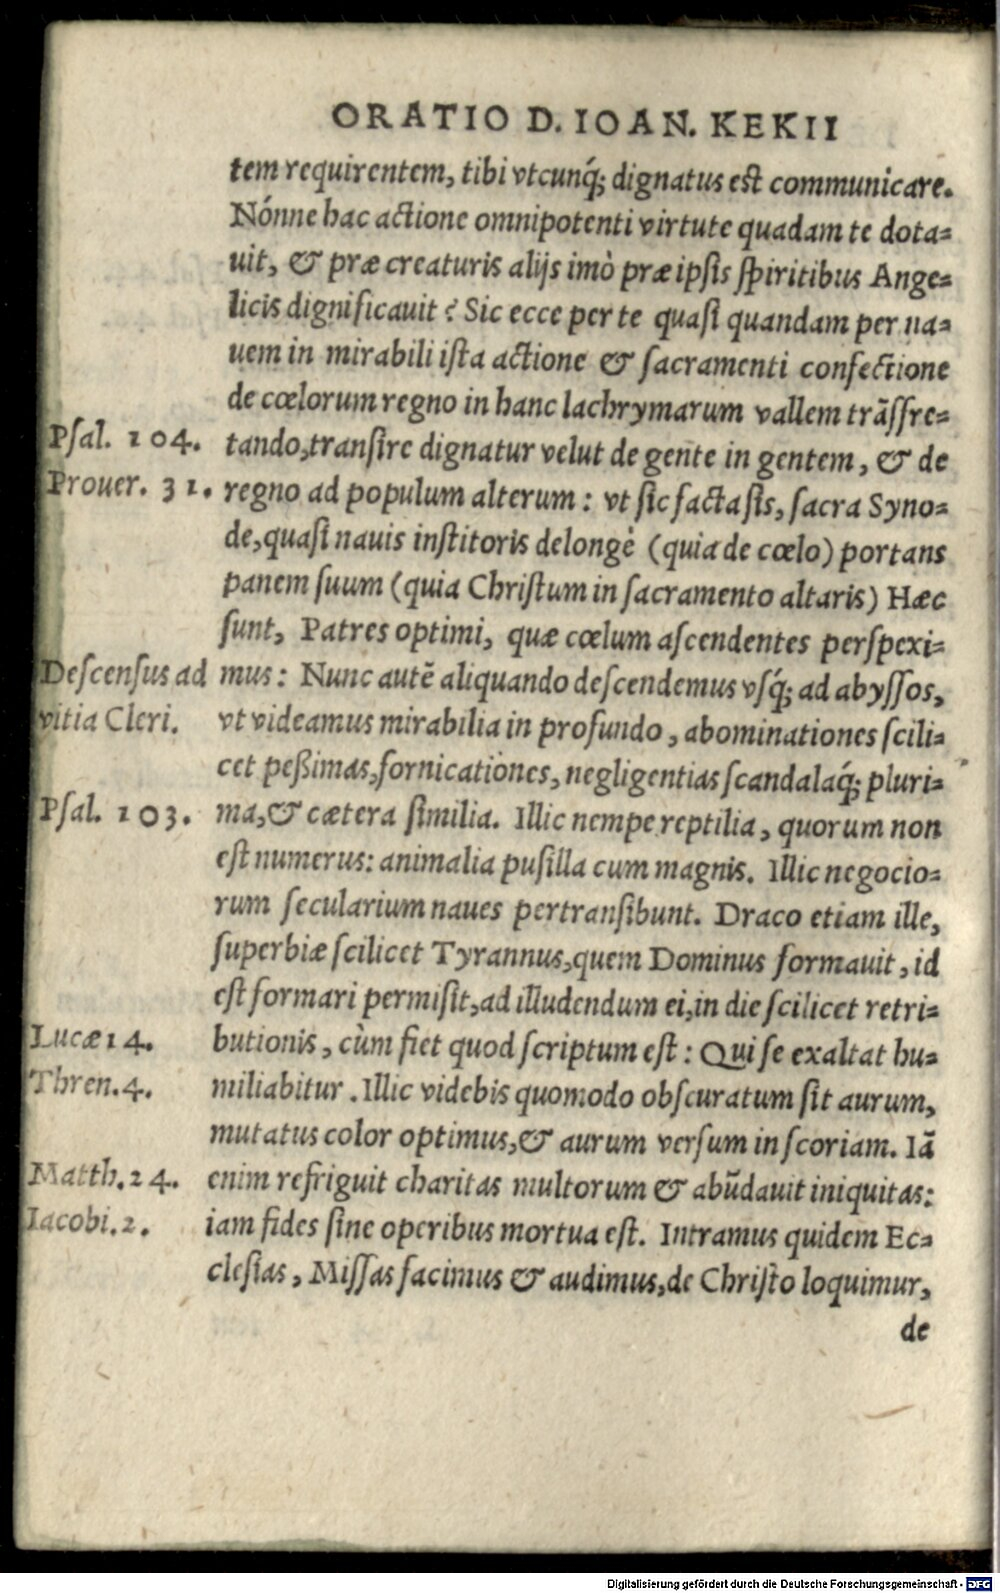 ORATIO D. IOAN. KEKII
tem requirentem, tibi vtcunq́; dignatus est communicare.
Nónne hac actione omnipotenti virtute quadam te dota-
uit, & præ creaturis alijs imò præ ipsis spiritibus Ange-
licis dignificauit? Sic ecce per te quasi quandam per na-
uem in mirabili ista actione & sacramenti confectione
de cœlorum regno in hanc lachrymarum vallem trãsfre-
Psal. 104. tando, transire dignatur velut de gente in gentem, & de
Prouer. 31. regno ad populum alterum: vt sic facta sis, sacra Syno-
de, quasi nauis institoris delongè (quia de cœlo) portans
panem suum (quia Christum in sacramento altaris) Hæc
sunt, Patres optimi, quæ cœlum ascendentes perspexi-
Descensus ad mus: Nunc autẽ aliquando descendemus vsq́; ad abyssos,
vitia Cleri. vt videamus mirabilia in profundo, abominationes scili-
cet peßimas, fornicationes, negligentias scandalaq́; pluri-
Psal. 103. ma, & cætera similia. Illic nempe reptilia, quorum non
est numerus: animalia pusilla cum magnis. Illic negocio-
rum secularium naues pertransibunt. Draco etiam ille,
superbiæ scilicet Tyrannus, quem Dominus formauit, id
est formari permisit, ad illudendum ei, in die scilicet retri-
Lucæ 14. butionis, cùm fiet quod scriptum est: Qui se exaltat hu-
Thren. 4. miliabitur. Illic videbis quomodo obscuratum sit aurum,
mutatus color optimus, & aurum versum in scoriam. Iã
Matth. 24. enim refriguit charitas multorum & abũdauit iniquitas:
Iacobi. 2. iam fides sine operibus mortua est. Intramus quidem Ec-
clesias, Missas facimus & audimus, de Christo loquimur,
de
Digitalisierung gefördert durch die Deutsche Forschungsgemeinschaft - DFG